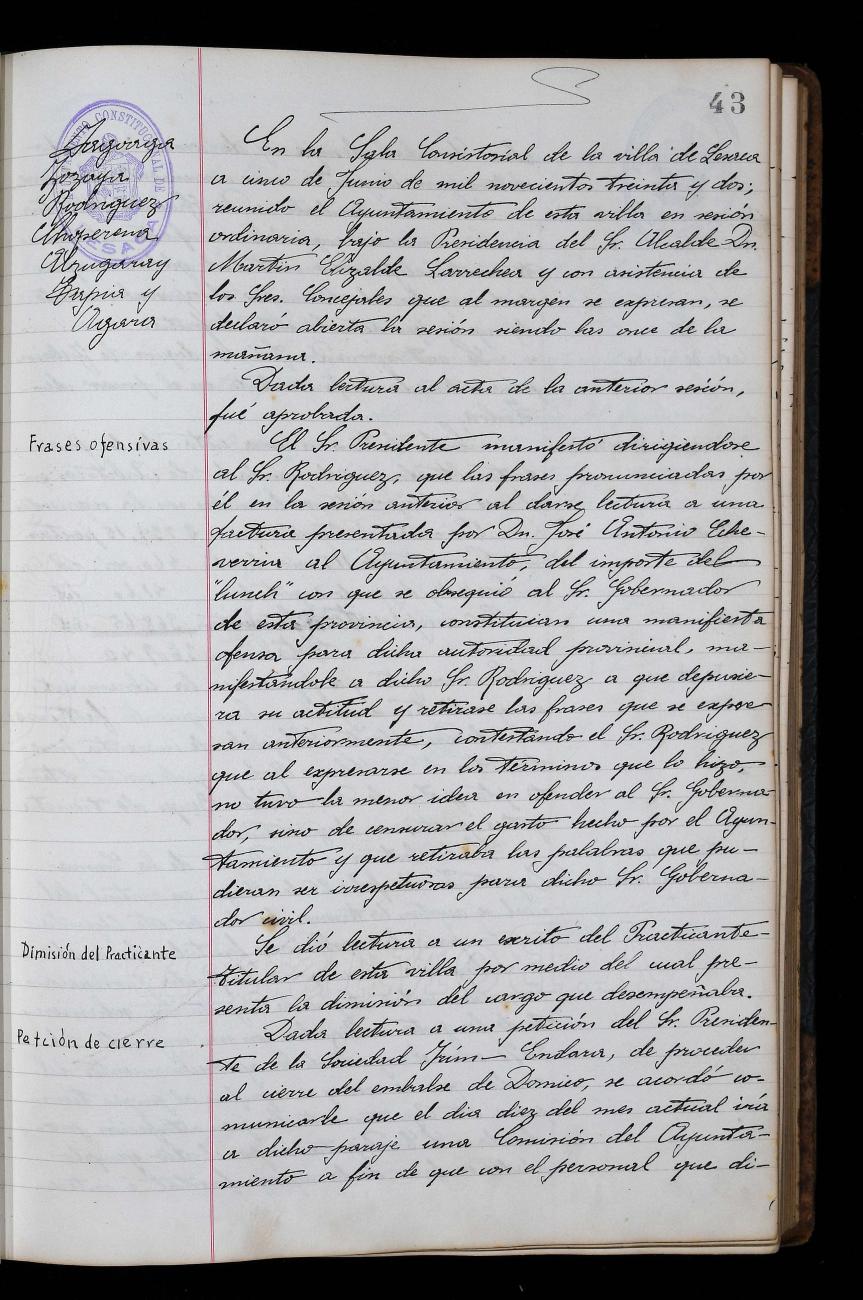 43
AYUNTAMIENTO CONSTITUCIONAL DE LESACA
Zozaya
Rodriguez
Choperena
Tapia y
En la Sala Consistorial de la villa de Lesaca
a cinco de Junio de mil novecientos treinta y dos;
reunido el Ayuntamiento de esta villa en sesión
ordinaria, bajo la Presidencia del Sr. Alcalde Dn.
Martin Elizalde Larrechea y con asistencia de
los Sres. Concejales que al margen se expresan, se
declaró abierta la sesión siendo las once de la
mañana.
Dada lectura al acta de la anterior sesión,
fué aprobada.
Frases ofensivas
El Sr. Presidente manifestó dirigiendose
al Sr. Rodriguez, que las frases pronunciadas por
él en la sesión anterior al darse lectura a una
factura presentada por Dn. José Antonio Eche-
verria al Ayuntamiento, del importe del
"lunch" con que se obsequió al Sr. Gobernador
de esta provincia, constituian una manifiesta
ofensa para dicha autoridad provincial, ma-
nifestándole a dicho Sr. Rodriguez a que depusie-
ra su actitud y retirase las frases que se expre
san anteriormente, contestándo el Sr. Rodriguez
que al expresarse en los términos que lo hizo,
no tuvo la menor idea en ofender al Sr. Goberna
dor, sino de censurar el gasto hecho por el Ayun-
tamiento y que retiraba las palabras que pu-
dieran ser irrespetuosas para dicho Sr. Goberna-
dor civil.
Dimisión del Practicante
Se dió lectura a un escrito del Practicante-
titular de esta villa por medio del cual pre-
senta la dimisión del cargo que desempeñaba.
Petción de cierre
Dada lectura a una petición del Sr. Presiden-
te de la Sociedad Irún-Endara, de proceder
al cierre del embalse de Domico, se acordó co-
municarle que el dia diez del mes actual iría
a dicho paraje una Comisión del Ayunta-
miento a fin de que con el personal que di-